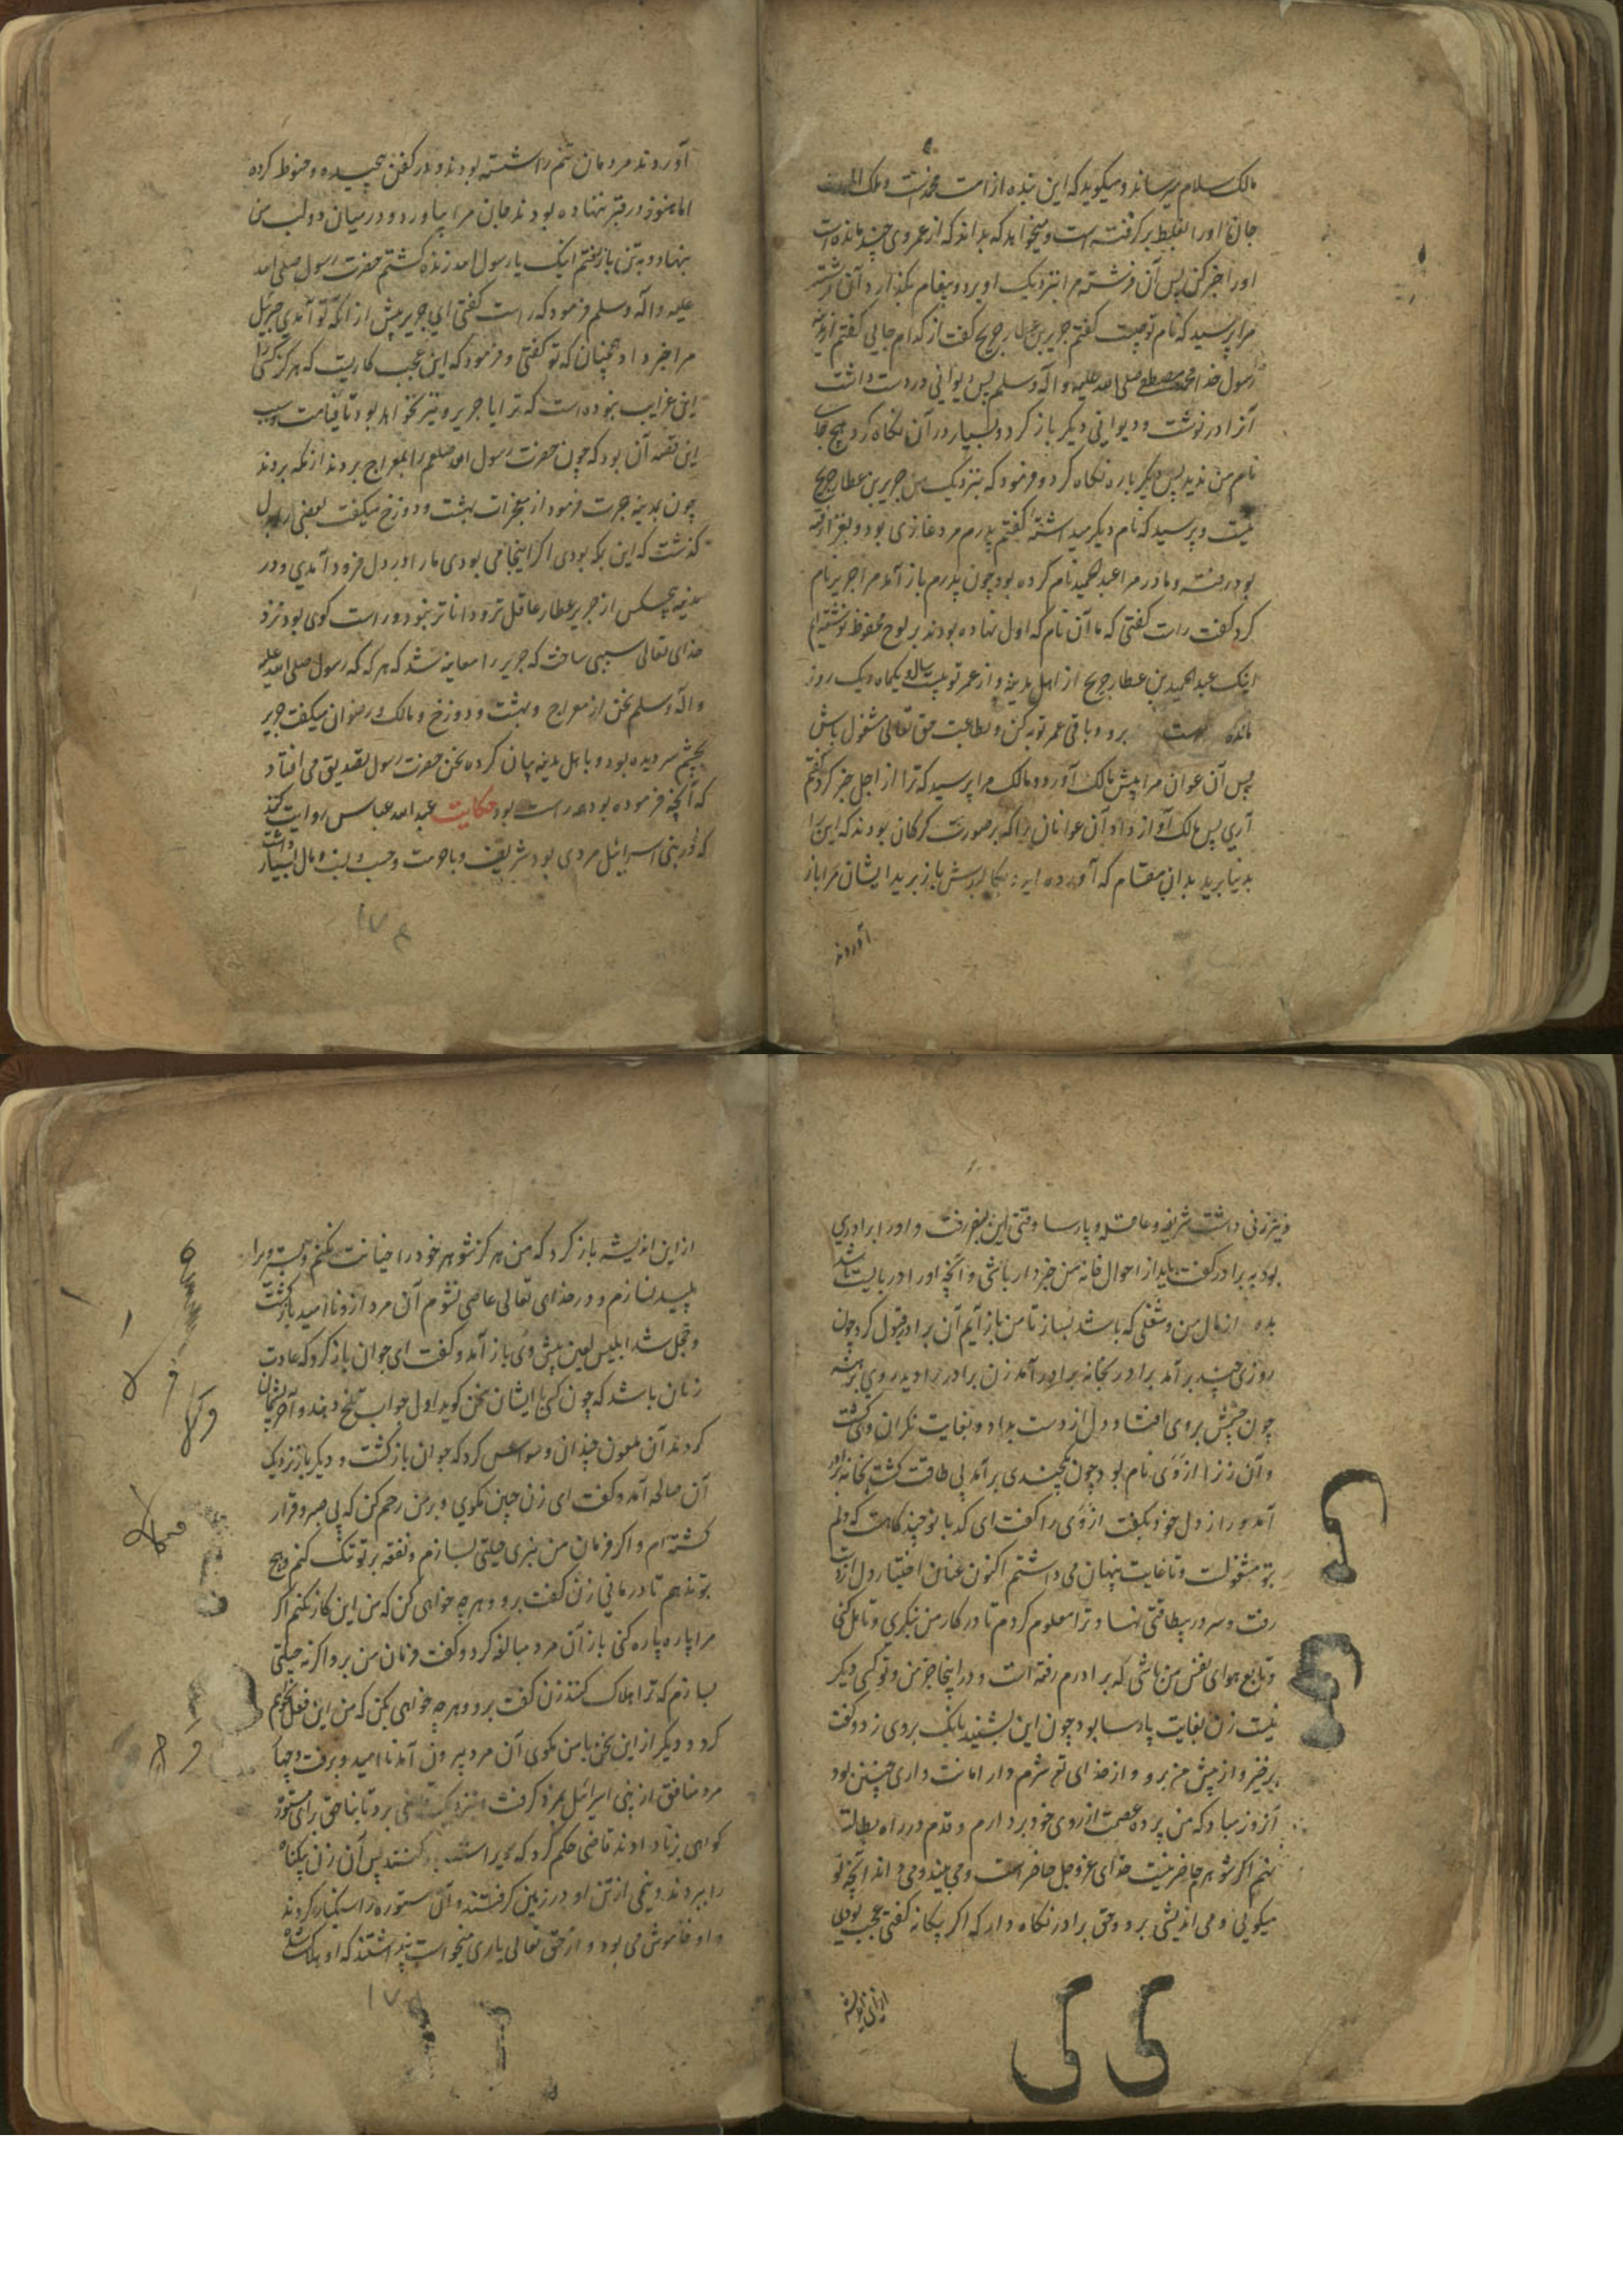 مالک سلام میرساند و میکوید که این بنده از امت محمدست و ملک الموت
جان او را بغلط برکرفته است و میخواهد که بداند که از عمر وی چند مانده است
او را خبر کن پس آن فرشته مرا بنزدیک او برد و پیغام بکذارد آن فرشته
مرا پرسید که نام تو چیست کفتم جریر بن عطار جریح کفت از کدام جایی کفتم از مدینه
رسول خدا محمد مصطفی صلی الله علیه و آله و سلم پس دیوانی در دست داشت
آنرا در نوشت و دیوانی دیکر باز کرد و بسیار در آن نکاه کرد هیچ جای
نام من ندید پس دیکر باره نکاه کرد و فرمود که بنزدیک من جریر بن عطار جریح
نیست و پرسید که نام دیکر میداشتهٔ کفتم پدرم مرد غازی بود و بغزا رفته
بود رفته و مادر مرا عبد الحمید نام کرده بود چون پدرم باز آمد مرا جریر نام
کرد کفت راست کفتی که ما آن نام که اول نهاده بودند بر لوح محفوظ نوشته ایم
اینک عبد الحمید بن عطار جریح از اهل مدینه و از عمر تو بیست سال و یکماه و یک روز
مانده است برو و باقی عمر توبه کن و بطاعت حق تعالی مشغول باش
پس آن عوان مرا پیش مالک آورد و مالک مرا پرسید که ترا از اجل خبر کرد کفتم
آری پس مالک آواز داد آن عوانان را که بر صورت کرکان بودند که این را
بدنیا برید بدان مقام که آورده اید بکالبدش باز برید ایشان مرا باز
آوردند
آوردند مردمان تنم را شسته بودند و در کفن پیچیده و حنوط کرده
اما هنوز در قبر ننهاده بودند جان مرا بیاورد و در میان دو لب من
بنهاد و بتن باز رفتم اینک یا رسول الله زنده کشتم حضرت رسول صلی الله
علیه و آله و سلم فرمود که راست کفتی ای جریر پیش از آنکه تو آمدی جبرئیل
مرا خبر داد همچنان که تو کفتی و فرمود که این عجب کاریست که هرکز کسی را
این غرایب نبوده است که ترا یا جریر و نیز نخواهد بود تا قیامت و سبب
این قصه آن بود که چون حضرت رسول الله صلعم را بمعراج بردند از مکه بردند
چون بمدینه هجرت فرمود از معجزات بهشت و دوزخ میکفت بعضی را بدل
کذشت که این بمکه بودی اکر اینجا می بودی ما را در دل فرود آمدی و در
مدینه هیچکس از جریر عطار عاقل تر و داناتر نبود و راست کوی بود نزد
خدای تعالی سببی ساخت که جریر را معاینه شد که هرکه که رسول صلی الله علیه
و آله و سلم سخن از معراج و بهشت و دوزخ و مالک و رضوان میکفت جریر
بچشم سر دیده بود و با اهل مدینه بیان کرده سخن حضرت رسول بتصدیق می افتاد
که آنچه فرموده بود همه راست بود حکایت عبد الله عباس روایت کند
که در بنی اسرائیل مردی بود شریف و با حرمت و حسب و نسب و مال بسیار داشت
۱۷۴
و نیز زنی داشت شریفه و عاقله و پارسا وقتی این بسفر رفت و او را برادری
بود به برادر کفت باید از احوال خانه من خبردار باشی و آنچه او را در بایست باشد
بده از مال من و شغلی که باشد بساز تا من باز آیم آن برادر قبول کرد چون
روزی چند برآمد برادر بخانه برادر آمد زن برادر را دید روی برهنه
چون چشمش بروی افتاد دل از دست بداد و بغایت نکران وی کشت
و آن زن را ازوی نام بود چون یکچندی برآمد بی طاقت کشت بخانه برادر
آمد و راز دل خود بکفت ازوی را کفت ای کدبانو چند کاهست که دلم
بتو مشغولست و تا غایت پنهان می داشتم اکنون عنان اختیار دل از دست
رفت و سر در بیطاقتی نهاد و ترا معلوم کردم تا در کار من بنکری و تامل کنی
و تابع هوای نفس من باشی که برادرم رفته است و در اینجا جز من و تو کسی دیکر
نیست زن بغایت پارسا بود چون این بشنید بانک بر وی زد و کفت
برخیز و از پیش من برو و از خدای تع شرم دار امانت داری چنین بود
آن روز مباد که من پرده عصمت از روی خود بردارم و قدم در راه بطالت
نهم اکر شوهرم حاضر نیست خدای عز و جل حاضر است و می بیند و می داند آنچه تو
میکویی و می اندیشی برو و حق برادر نکاه دار که اکر بیکانه کفتی عجب بودی
از این اندیشه
از این اندیشه باز کرد که من هرکز شوهر خود را خیانت نکنم و بستر ویرا
پلید نسازم و در خدای تعالی عاصی نشوم آن مرد از و ناامید باز کشت
و خجل شد ابلیس لعین پیش وی باز آمد و کفت ای جوان باز کرد که عادت
زنان باشد که چون کسی با ایشان سخن کوید اول جواب تلخ دهند و آخر پشیمان
کردند آن ملعون چندان وسواس کرد که جوان باز کشت و دیکر بار نزدیک
آن صالحه آمد و کفت ای زن چنین مکوی و بر من رحم کن که بی صبر و قرار
کشته ام و اکر فرمان من نبری حیلتی بسازم و نفقه بر تو تنک کنم و هیچ
بتو ندهم تا درمانی زن کفت برو و هر چه خواهی کن که من این کار نکنم اکر
مرا پاره پاره کنی باز آن مرد مبالغه کرد و کفت فرمان من بر و اکر نه حیلتی
بسازم که ترا هلاک کنند زن کفت برو و هر چه خواهی بکن که من این فعل نخواهم
کرد و دیکر از این سخن با من مکوی آن مرد بیرون آمد ناامید و برفت و چهار
مرد منافق از بنی اسرائیل بمزد کرفت و نزدیک قاضی برد تا بناحق بر آن مستوره
کواهی بزنا دادند قاضی حکم کرد که ویرا سنکسار کنند پس آن زن بیکناه
را ببردند و نیمی از تن او در زمین کرفتند و آن مستوره را سنکسار کردند
و او خاموش می بود و از حق تعالی یاری میخواست پنداشتند که او هلاک شده
۱۷۵